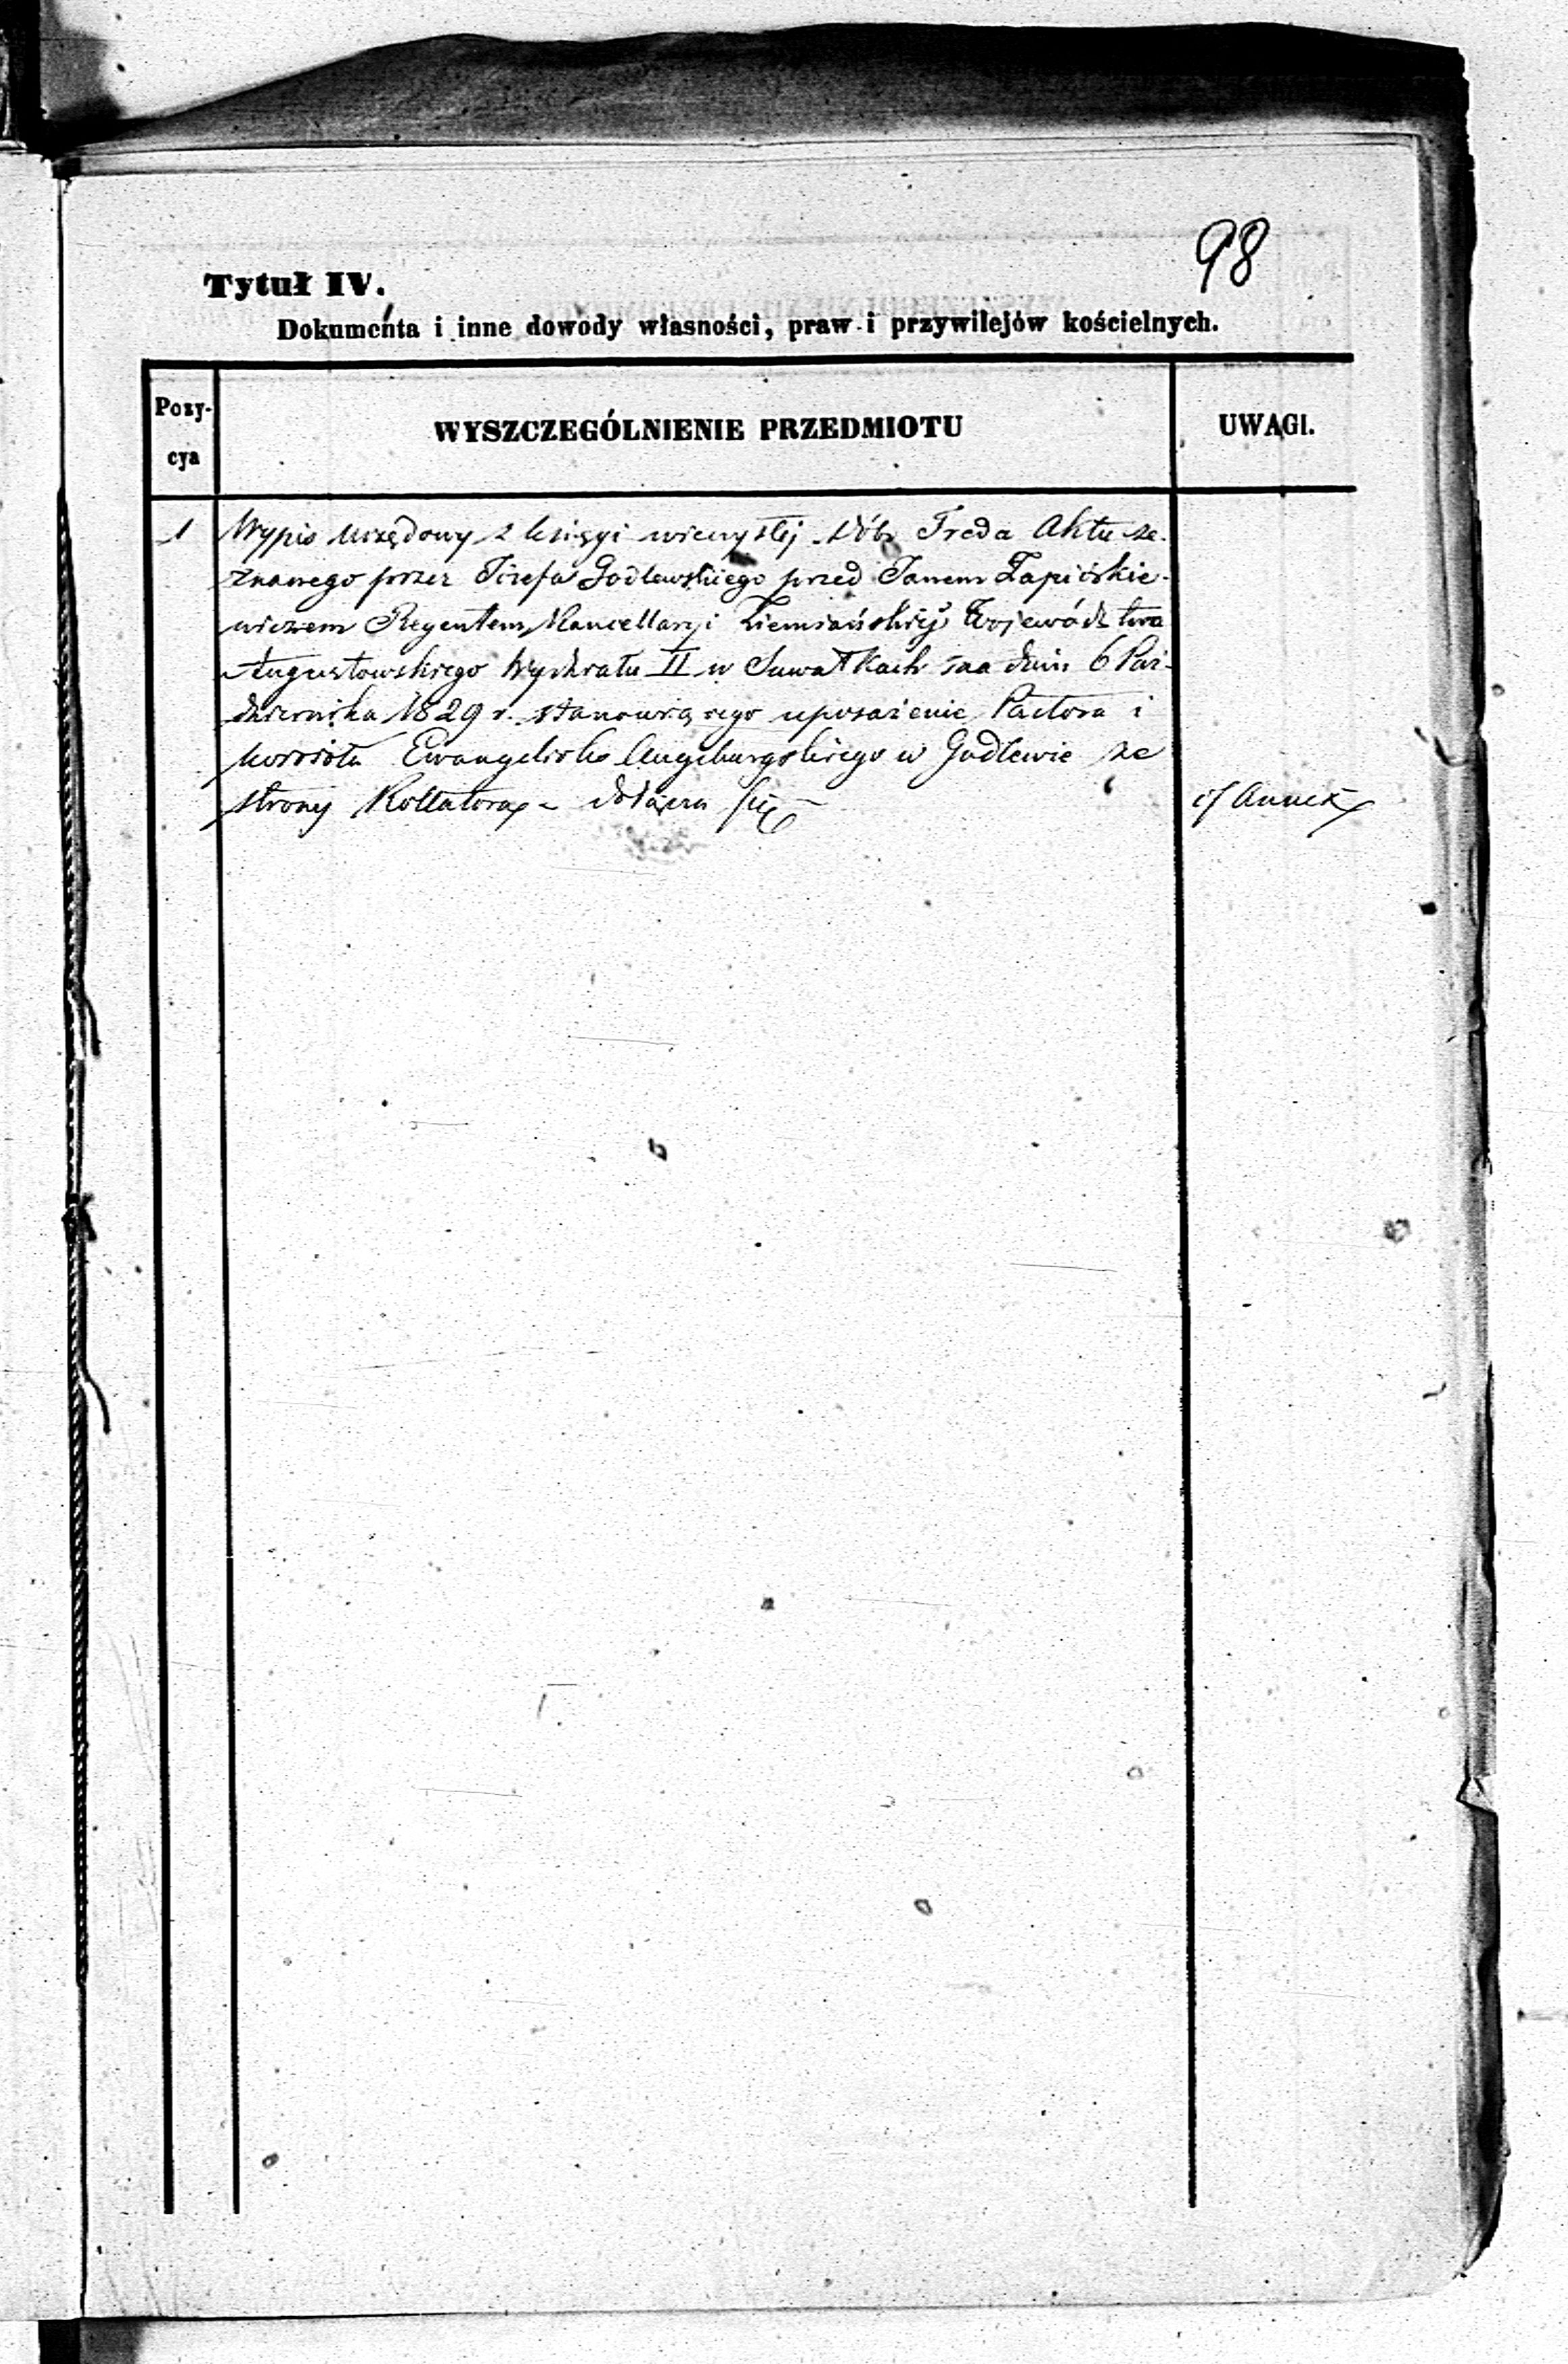 98
Tytuł IV.
Dokumenta i inne dowody własności, praw i przywilejów kościelnych.
Pozy-
cya
WYSZCZEGÓLNIENIE PRZEDMIOTU
UWAGI.
1
Wypis urzędowy z księgi wieczystej Dóbr Freda Aktu ze-
znanego przez Józefa Godlewskiego przed Janem Zapiórkie-
wiczem Regentem Kancellaryi Ziemiańskiej Województwa
Augustowskiego Wydziału II w Suwałkach na dniu 6 Paź-
dziernika 1829 r. stanowiącego uposażenie Pastora i
kościoła Ewangelicko Augsburgskiego w Godlewie ze
strony Kollatora, - dołącza się -
Annex